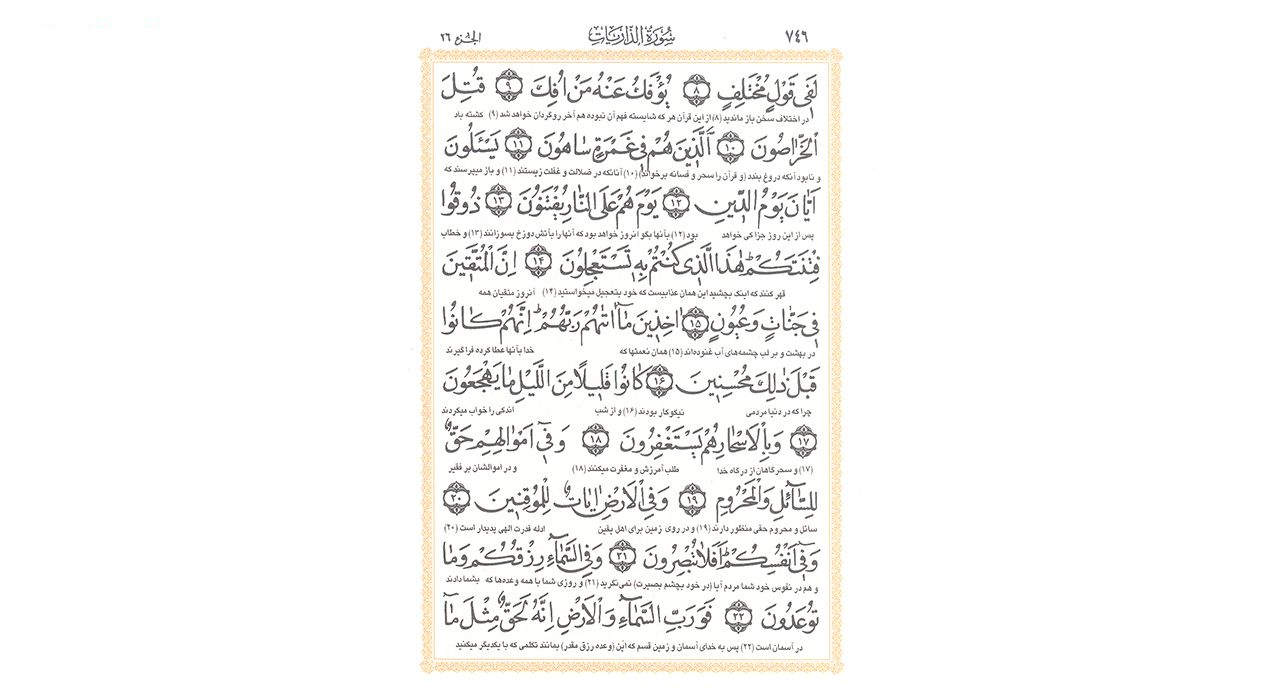 ٧٤٩ سُورَةُ الذَّارِيَاتِ الجزء ٢٦
لَفِى قَوْلٍ مُخْتَلِفٍ ﴿٨﴾ يُؤْفَكُ عَنْهُ مَنْ اُفِكَ ﴿٩﴾ قُتِلَ
در اختلاف سخن باز ماندید (۸) از این قرآن هر که شایسته فهم آن نبوده هم آخر روگردان خواهد شد (۹) کشته باد
الْخَرَّاصُونَ ﴿١٠﴾ اَلَّذِينَ هُمْ فِى غَمْرَةٍ سَاهُونَ ﴿١١﴾ يَسْئَلُونَ
و نابود آنکه دروغ بندد (و قرآن را سحر و فسانه برخواند) (۱۰) آنانکه در ضلالت و غفلت زیستند (۱۱) و باز میپرسند که
اَيَّانَ يَوْمُ الدِّينِ ﴿١٢﴾ يَوْمَ هُمْ عَلَى النَّارِ يُفْتَنُونَ ﴿١٣﴾ ذُوقُوا
پس از این روز جزا کی خواهد بود (۱۲) بآنها بگو آنروز خواهد بود که آنها را بآتش دوزخ بسوزانند (۱۳) و خطاب
فِتْنَتَكُمْ هٰذَا الَّذِى كُنْتُمْ بِهِ تَسْتَعْجِلُونَ ﴿١٤﴾ اِنَّ الْمُتَّقِينَ
قهر کنند که اینک بچشید این همان عذابیست که خود بتعجیل میخواستید (۱۴) آنروز متقیان همه
فِى جَنَّاتٍ وَعُيُونٍ ﴿١٥﴾ اٰخِذِينَ مَآ اٰتٰهُمْ رَبُّهُمْ اِنَّهُمْ كَانُوا
در بهشت و بر لب چشمه‌های آب غنوده‌اند (۱۵) همان نعمتها که خدا بآنها عطا کرده فرا گیرند
قَبْلَ ذٰلِكَ مُحْسِنِينَ ﴿١٦﴾ كَانُوا قَلِيلًا مِنَ اللَّيْلِ مَا يَهْجَعُونَ
چرا که در دنیا مردمی نیکوکار بودند (۱۶) و از شب اندکی را خواب میکردند
﴿١٧﴾ وَبِالْاَسْحَارِ هُمْ يَسْتَغْفِرُونَ ﴿١٨﴾ وَفِىٓ اَمْوَالِهِمْ حَقٌّ
(۱۷) و سحرگاهان از درگاه خدا طلب آمرزش و مغفرت میکنند (۱۸) و در اموالشان بر فقیر
لِلسَّآئِلِ وَالْمَحْرُومِ ﴿١٩﴾ وَفِى الْاَرْضِ اٰيَاتٌ لِلْمُوقِنِينَ ﴿٢٠﴾
سائل و محروم حقی منظور دارند (۱۹) و در روی زمین برای اهل یقین ادله قدرت الهی پدیدار است (۲۰)
وَفِىٓ اَنْفُسِكُمْ اَفَلَا تُبْصِرُونَ ﴿٢١﴾ وَفِى السَّمَآءِ رِزْقُكُمْ وَمَا
و هم در نفوس خود شما مردم آیا (در خود بچشم بصیرت) نمی‌نگرید (۲۱) و روزی شما با همه وعده‌ها که بشما دادند
تُوعَدُونَ ﴿٢٢﴾ فَوَرَبِّ السَّمَآءِ وَالْاَرْضِ اِنَّهُ لَحَقٌّ مِثْلَ مَآ
در آسمان است (۲۲) پس به خدای آسمان و زمین قسم که این (وعده رزق مقدر) بمانند تکلمی که با یکدیگر میکنید